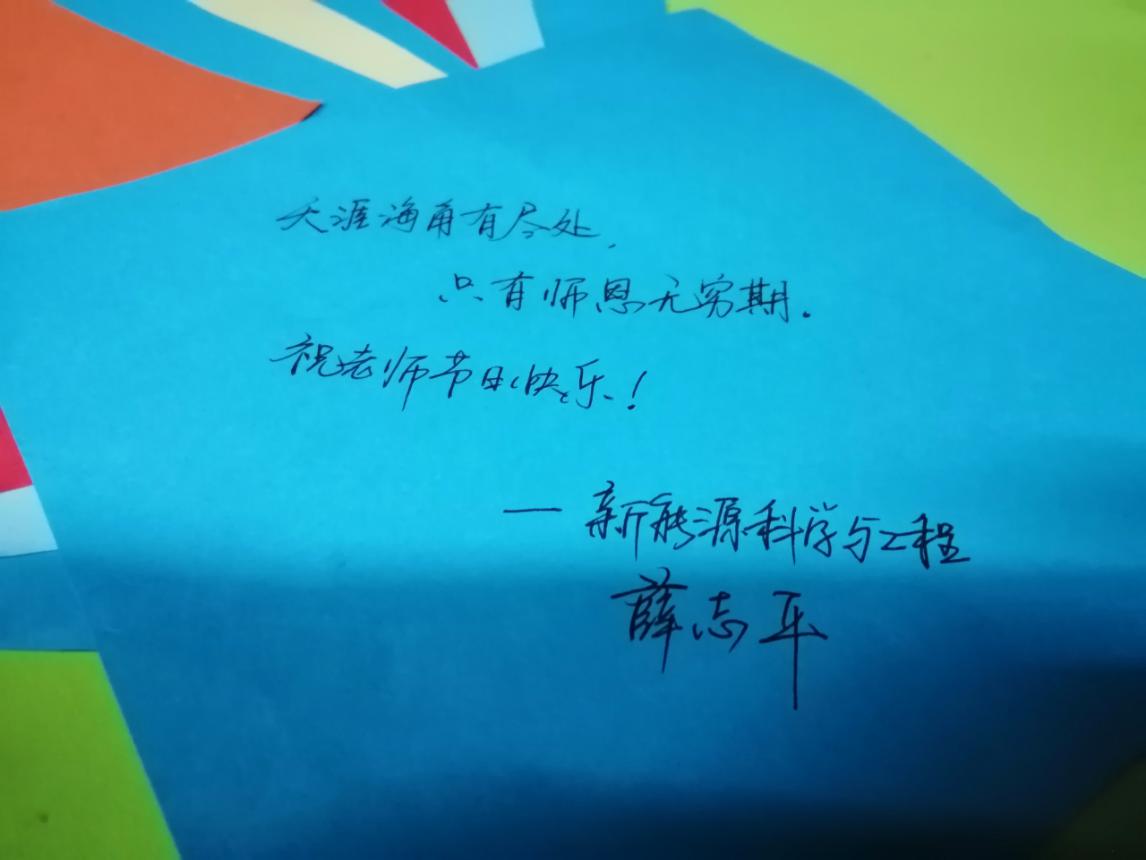 天涯海角有尽处,
只有师恩无穷期.
祝老师节日快乐!
— 新能源科学与工程
薛志平